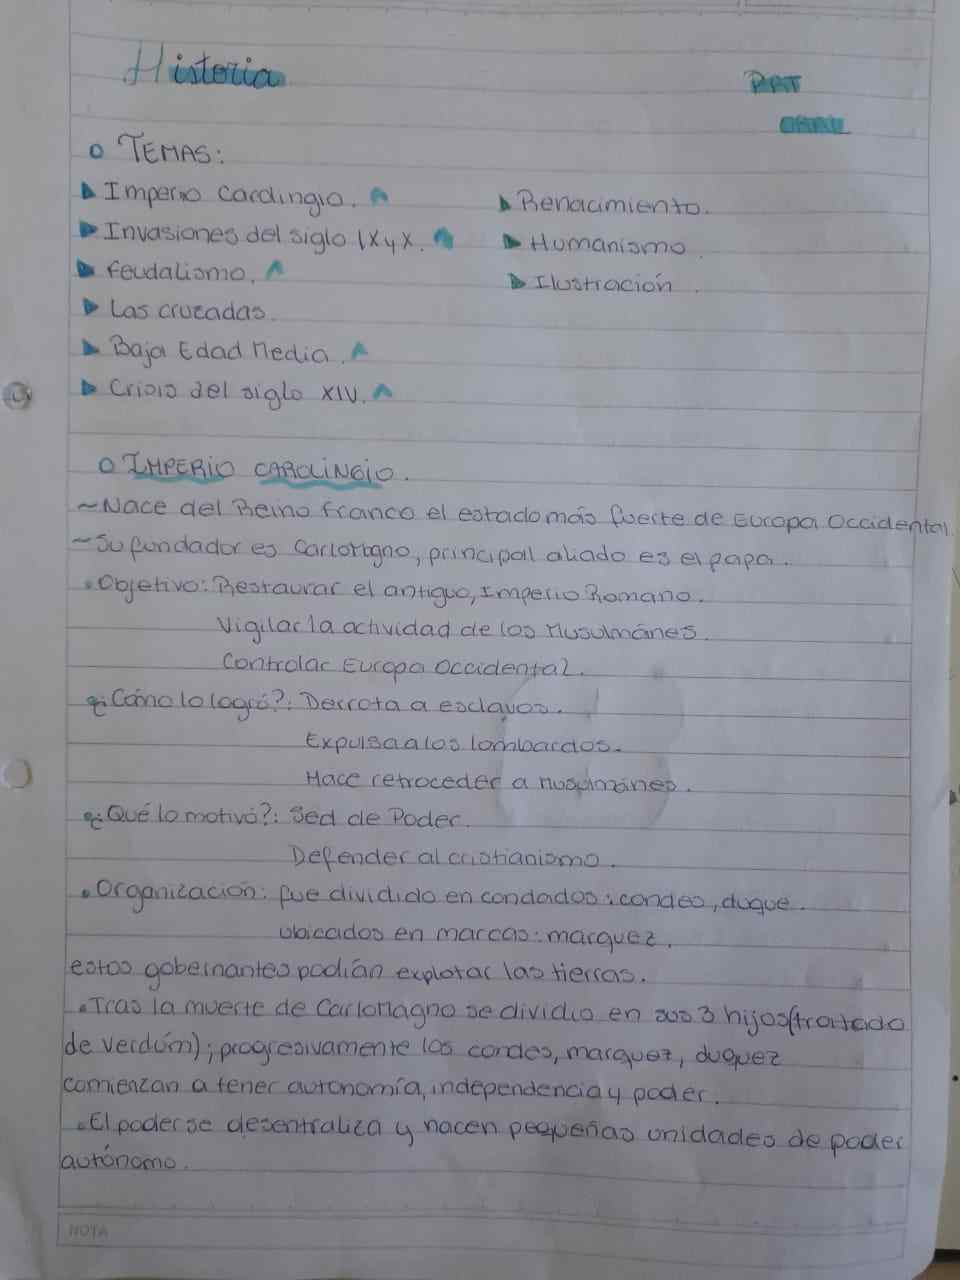 Historia
PAT
ORAL
o TEMAS:
▸ Imperio Cardingio.
▸ Invasiones del siglo IX y X.
▸ Feudalismo.
▸ Las cruzadas.
▸ Baja Edad Media.
▸ Crisis del siglo XIV.
▸ Renacimiento.
▸ Humanismo
▸ Ilustración
o IMPERIO CAROLINGIO.
~Nace del Reino Franco el estado más fuerte de Europa Occidental
~Su fundador es CarloMagno, principal aliado es el papa.
• Objetivo: Restaurar el antiguo, Imperio Romano.
Vigilar la actividad de los Musulmánes.
Controlar Europa Occidental.
¿Cómo lo logró?: Derrota a esclavos.
Expulsa a los lombardos.
Hace retroceder a musulmánes.
¿Qué lo motivó?: Sed de Poder.
Defender al cristianismo.
• Organización: fue dividido en condados: condes, duque.
ubicados en marcas: marquez.
estos gobernantes podían explotar las tierras.
• Tras la muerte de CarloMagno se dividio en sus 3 hijos (tratado
de Verdúm); progresivamente los condes, marquez, duquez
comienzan a tener autonomía, independencia y poder.
• El poder se desentraliza y nacen pequeñas unidades de poder
autónomo.
NOTA